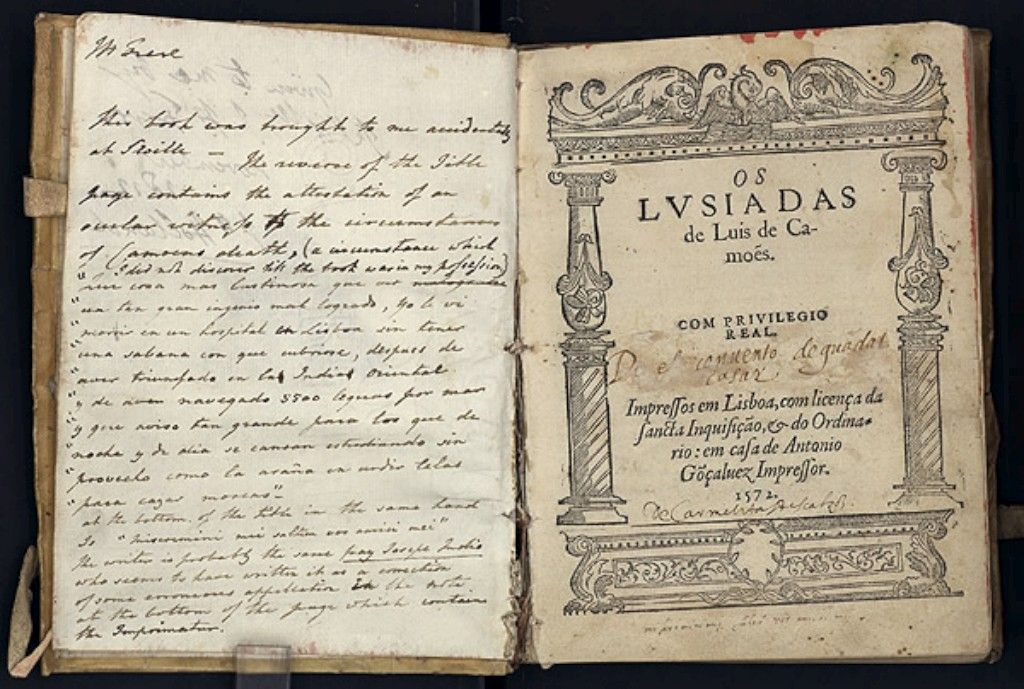 Mr Frere
This book was brought to me accidentally
at Seville — The reverse of the Title
page contains the attestation of an
ocular witness to the circumstances
of Camoens death, (a circumstance which
I did not discover till the book was in my possession)
" que cosa mas lastimosa que ver
" un tan gran ingenio mal logrado, yo le vi
" morir en un hospital en Lisboa sin tener
" una sabana con que cubrirse, despues de
" aver triunfado en la India Oriental
" y de aver navegado 5500 leguas por mar
" y que aviso tan grande para los que de
" noche y de dia se cansan estudiando sin
" provecho como la araña en urdir telas
" para cazar moscas"
at the bottom of the title in the same hand
is " miseremini mei saltem vos amici mei"
The writer is probably the same fray Joseph Indio
who seems to have written it as a correction
of some erroneous application in the note
at the bottom of the page which contains
the Imprimatur.
OS
LVSIADAS
de Luis de Ca-
moẽs.
COM PRIVILEGIO
REAL.
De el convento de guadal
cazar.
Impreſſos em Lisboa, com licença da
ſancta Inquiſição, & do Ordina-
rio: em caſa de Antonio
Gõçaluez Impreſſor.
1572.
De Carmelitas Descalços.